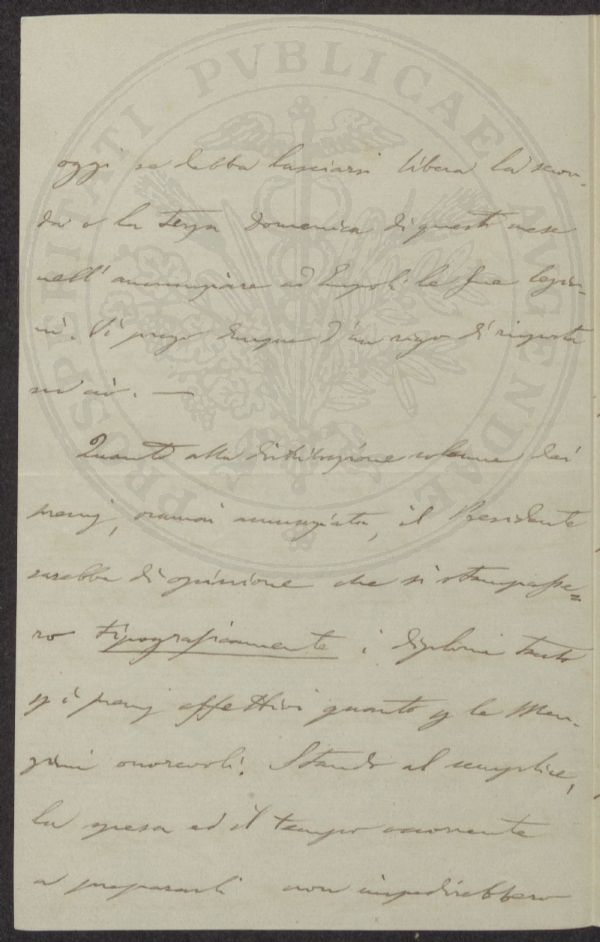 PROSPERITATI PVBLICAE AVGENDAE
oggi se debba lasciarsi libera la secon-
da o la terza Domenica di questo mese
nell'annunziare ad Empoli le sue lezio-
ni. Ti prego dunque d'un rigo di risposta
su ciò. —
Quanto alla distribuzione solenne dei
premj, oramai annunziata, il Presidente
sarebbe di opinione che si stampasse=
ro tipograficamente i diplomi tanto
p i premj effettivi quanto p le Men-
zioni onorevoli. Stando al semplice,
la spesa ed il tempo occorrente
a prepararli non impedirebbero